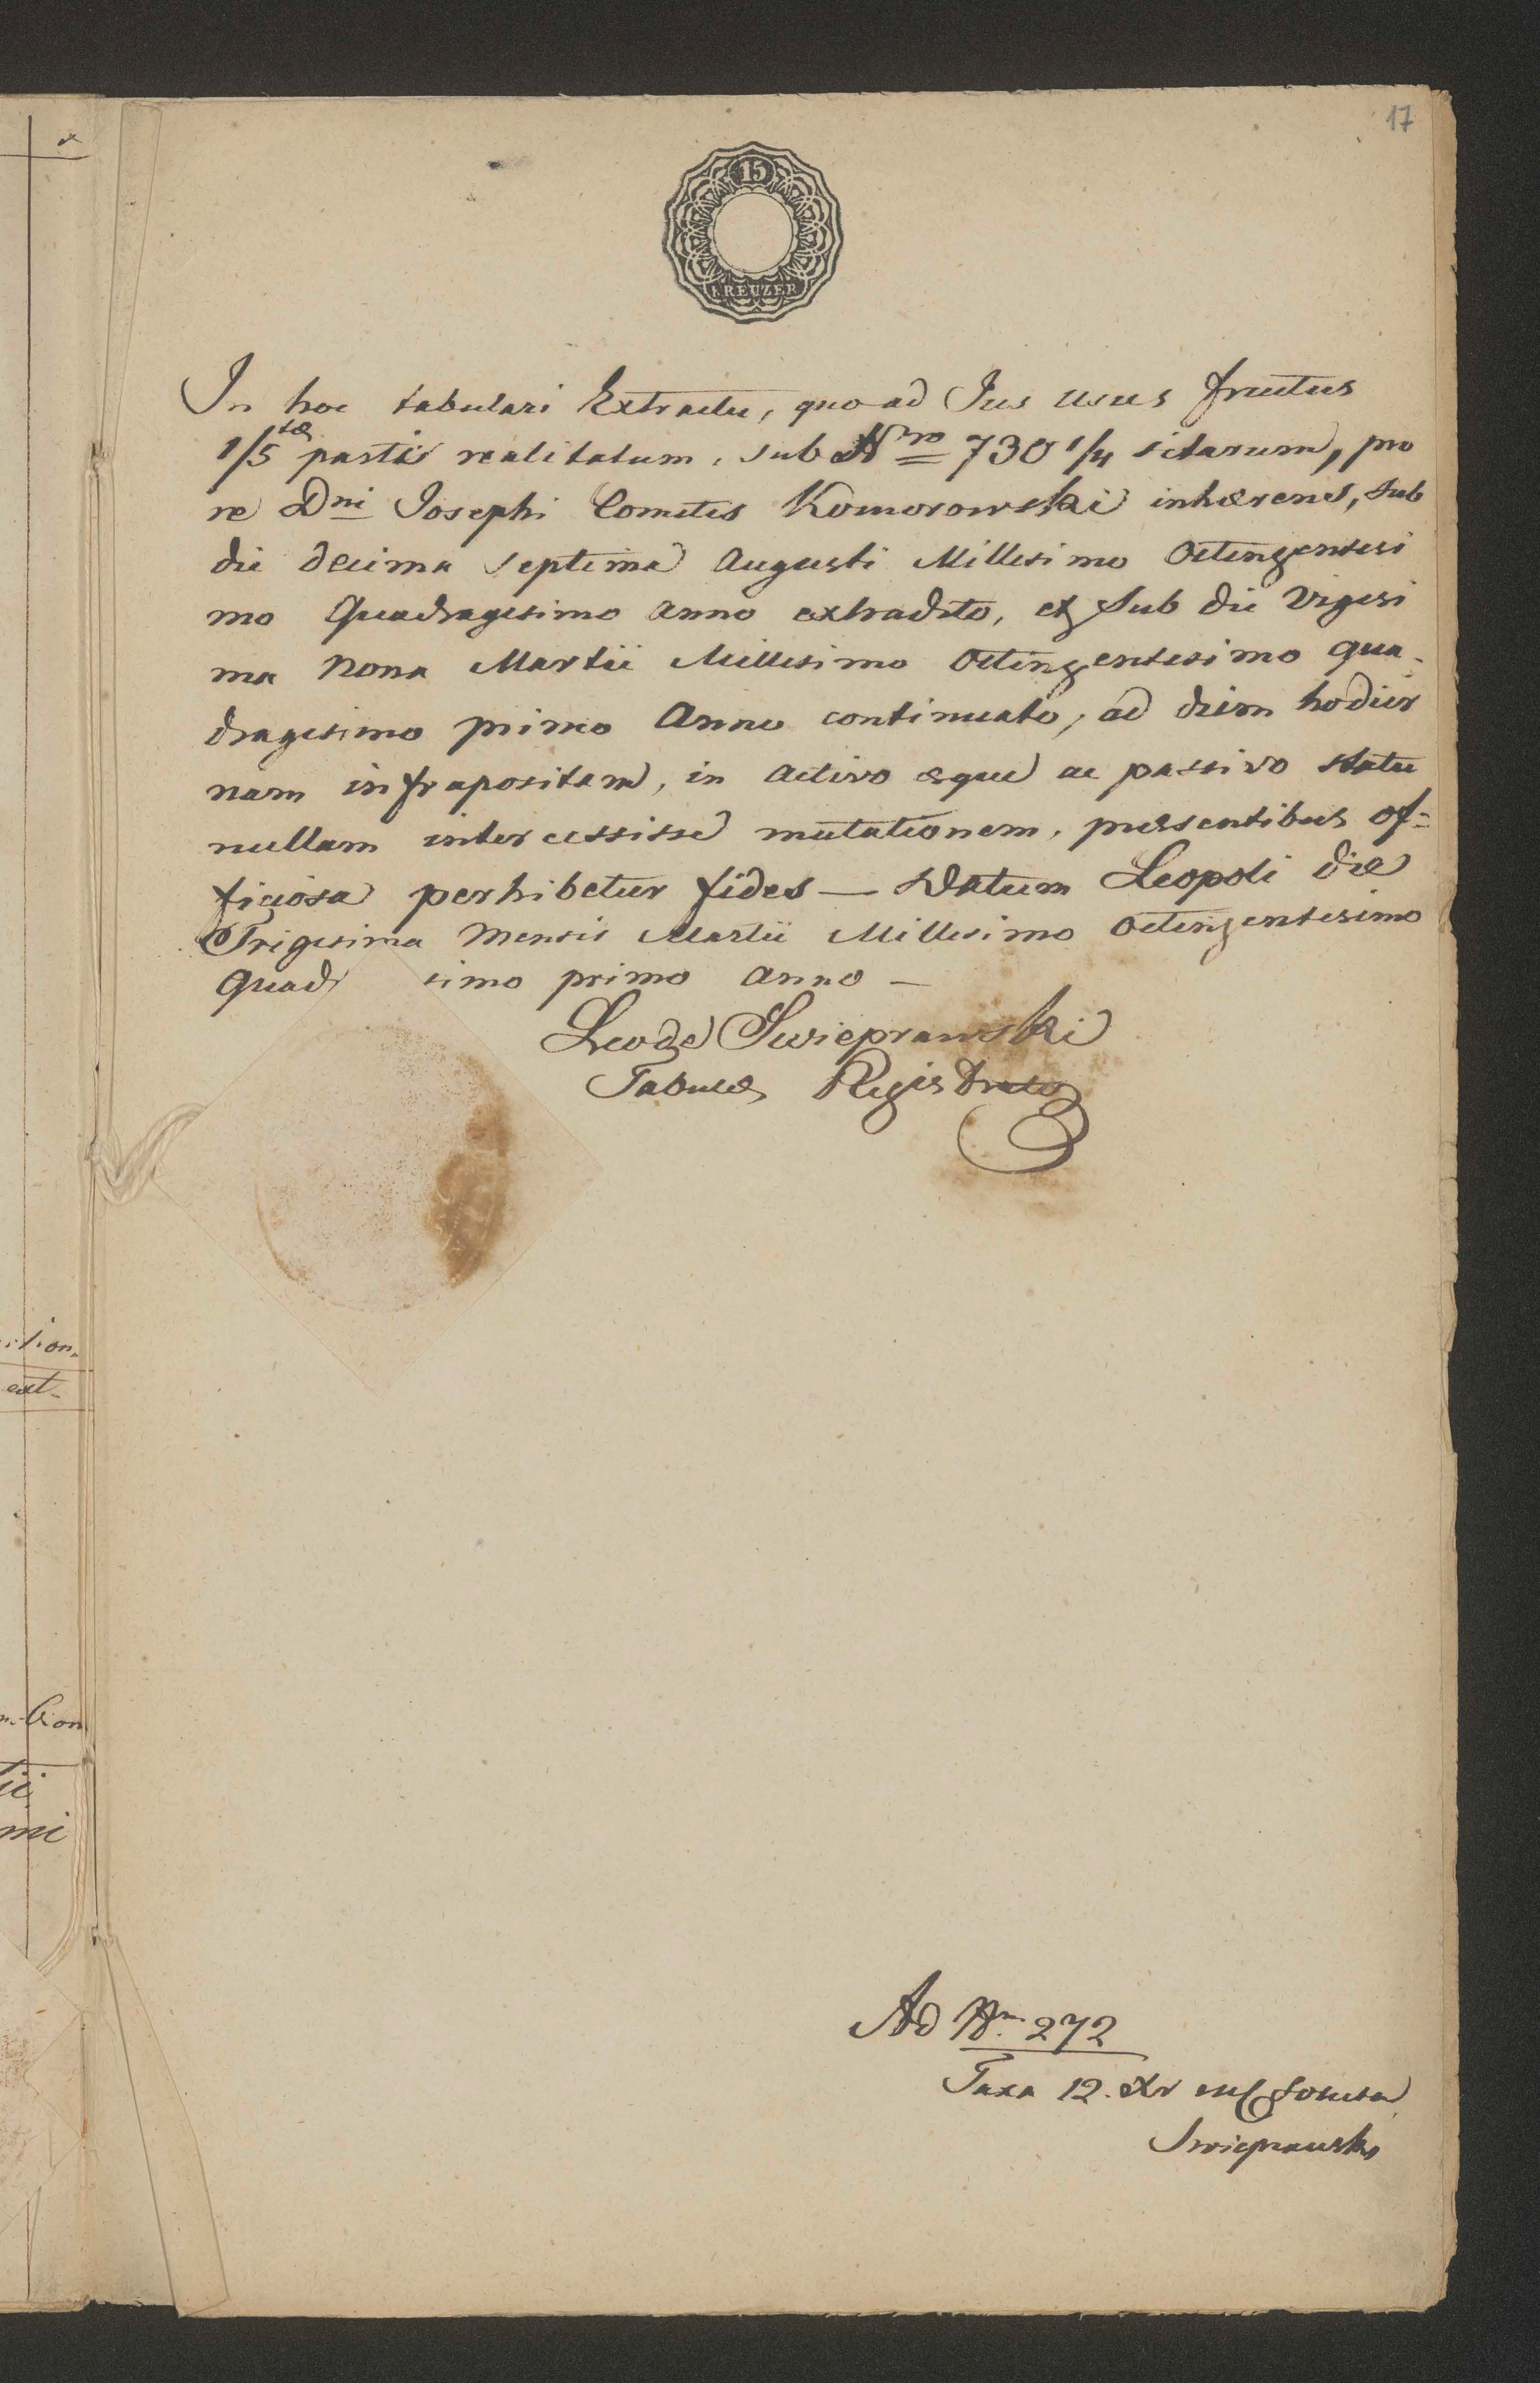 17
15
KREUZER
In hoc tabulari Extractu, quoad Jus usus fructus
1/5tæ partis realitatum, sub Nro 730 1/4 sitarum, pro
re Dni Josephi Comitis Komorowski inhærens, sub
die decima septima Augusti Millesimo Octingentesi
mo Quadragesimo anno extradito, et sub die Vigesi
ma Nona Martii Millesimo Octingentesimo qua-
dragesimo primo Anno continuato, ad diem hodier
nam infrapositam, in activo æque ac passivo statu
nullam intercessisse mutationem, præsentibus of=
ficiosa perhibetur fides — Datum Leopoli die
Trigesima Mensis Martii Millesimo Octingentesimo
Quadr simo primo anno —
Swieprawski
Tabulæ Registrator
Ad Nm 272
Taxa 12. xr
Swieprawski
ition.
ext.
tii
mi